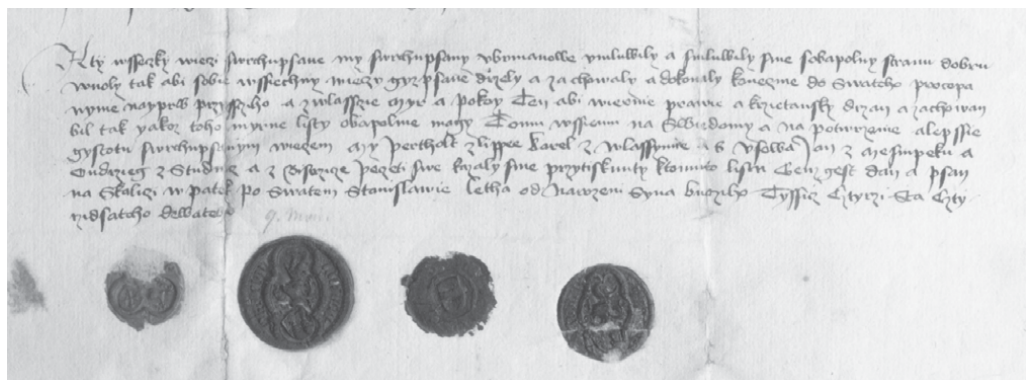 Kty wssezky wiezi swrchupsane my swrchupsany vbrmanowe vmluwily a smluwily sme sobapolny stranu dobru
wuoly tak abi sobie wssiechny wiezy gyz psane drzely a zachowaly a dokonaly konecznie do Swateho procopa
wynie nayprw przyssziho a zwlasscie myr a pokoy Ten abi wiernie prawie a krzietansky drzan a zachowan
bil tak yakoz toho myrne listy obapolnie magy Tomu wssiemu na Swiedomy a na potwrzenie a lepssie
gystotu swrchupsanym wiezem my Perchtolt z lippee karel z wlassymie a s vsowa Jan z mesimpeku a
Ondrzieg z Studnicz a z Peczeti swe kazaly sme przytisknuty ktomuto listu Genz gest dan a psan
na Skaliczi w patek Po Swatem Stanislawie letha od Narozeni Syna buozyho Tyssicz Cztyrzi Sta Czty
rzidsateho dewateho
9. Maii